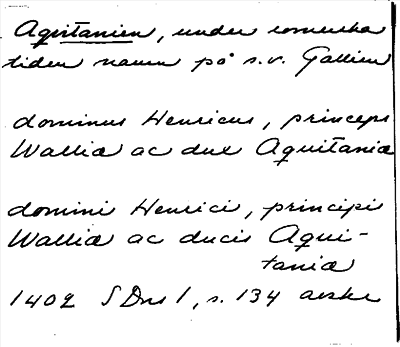 Aquitanien, under romerska
tiden namn på s.v. Gallien
dominus Henricus, princeps
Wallia ac dux Aquitania
domini Henrici, principi
Wallia ac ducis Aqui-
tania
1402 SDns 1, s. 134